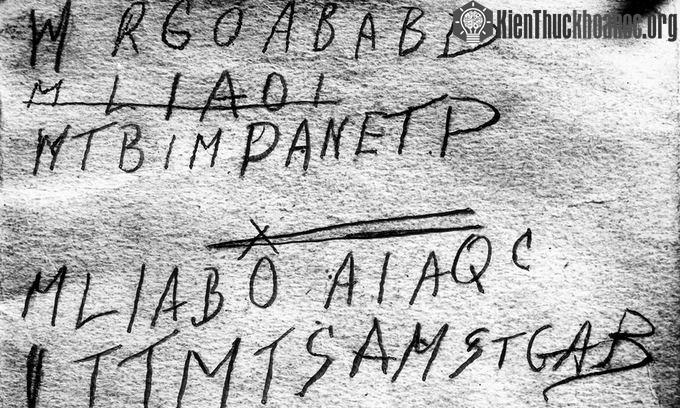 KienThuckhoahoc.org
W RGOABABD
MLIAOI
WTBIMPANETP
X
MLIABO AIAQC
ITTMTSAMSTGAB